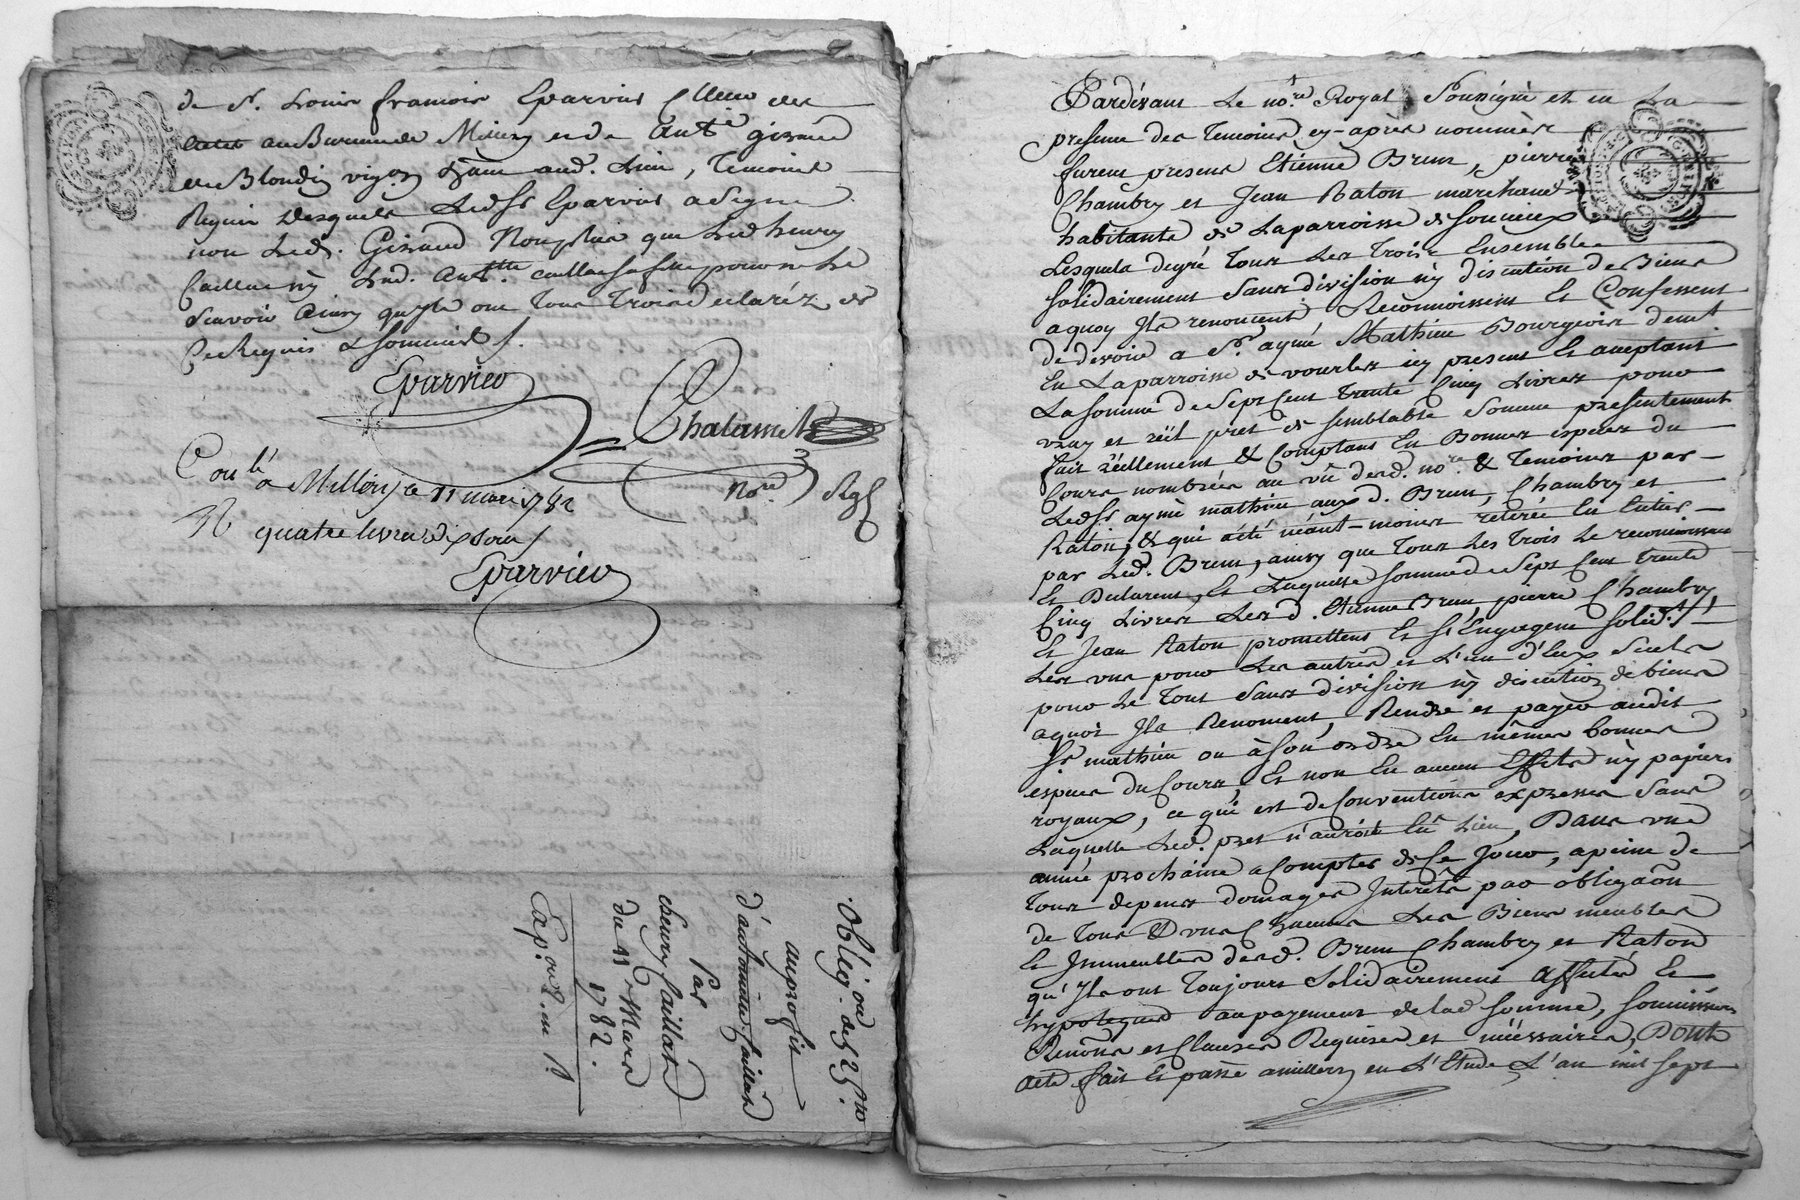 de Sr. Louis francois Eparvier Clerc
au Bureau de Millery et de Antne. giraud
vigon dud. Lieu, Temoins
Requis desquels Ledsr Eparvier a Signé
non Led. Giraud Nonplus que Led henry
Caillat ny Lad. Antte. Caillat sa fille pour ne Le
Scavoir Ainsy quyls ont Tous Trois declaréz de
Ce Requis & Sommés /.
Eparvier
Chalamel
Nore. Rgl
Con lé a Millery le 11 mars 1782
R quatre livres dix sous /
Eparvier
Obligaon. de 525 tt
au profit
d'antoinette Caillat
Par
henry Caillat
du 11 Mars
1782.
Pardevant Le nore. Royal Soussigné et en La
presence des Temoins cy-après nommés
furent presens Etienne Brun, pierre
Chambry et Jean Raton marchands
habitants de Laparroisse de Soucieux
Lesquels degré Tous Les Trois Ensemble
Solidairement Sans division ny discution de Biens
aquoy Ils renoncent Reconnoissent Et Confessent
de devoir a Sr. aymé Mathieu Bourgeois demt.
En Laparroisse de vourles icy present Et acceptant
La Somme de Sept Cent Trente Cinq Livres pour
vray et réel pret de Semblable Somme presentement
fait réellement & Comptant En Bonnes especes du
Cours nombrées au vû dud. nore. & Temoins par
Ledsr aymé mathieu auxd. Brun, Chambry et
Raton, & qui a été néant-moins retirée En Entier
par Led. Brun, ainsy que Tous Les Trois Le reconnoissent
Et Declarent, Et Laquelle Somme de Sept Cent Trente
Cinq Livres Lesd. Etienne Brun pierre Chambry
Et Jean Raton promettent Et S'Engagent Solidt. /
Les uns pour Les autres et L'un d'Eux Seul
pour Le Tout Sans division ny discution de biens
aquoi Ils Renoncent, Rendre et payer audit
Sr mathieu ou à Son ordre En mêmes bonnes
especes du Cours, Et non En aucun Effets ny papiers
royaux, ce qui est de Conventions expresses Sans
Laquelle Led. pret n'auroit Eu Lieu, Dans une
année prochaine a Compter de Ce Jour, a peine de
Tous depens domages Interêts par obligaôn
de Tous & uns Chacuns Les Biens meubles
Et Immeubles desd. Brun Chambry et Raton
qu'Ils ont Toujours Solidairement affectés Et
hypotequés au payement de Lad Somme, Soumissions
Renôns et Clauses Requises et nécessaires, Dont
acte fait Et passé a millery en L'Etude L'an mil Sept